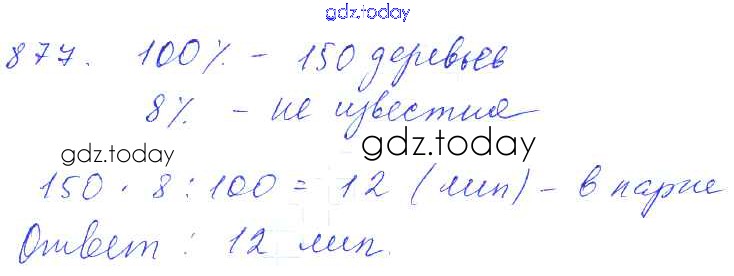 gdz.today
877. 100% - 150 деревьев
8% - не известно
gdz.today gdz.today
150 · 8 : 100 = 12 (лип) - в парке
Ответ : 12 лип.